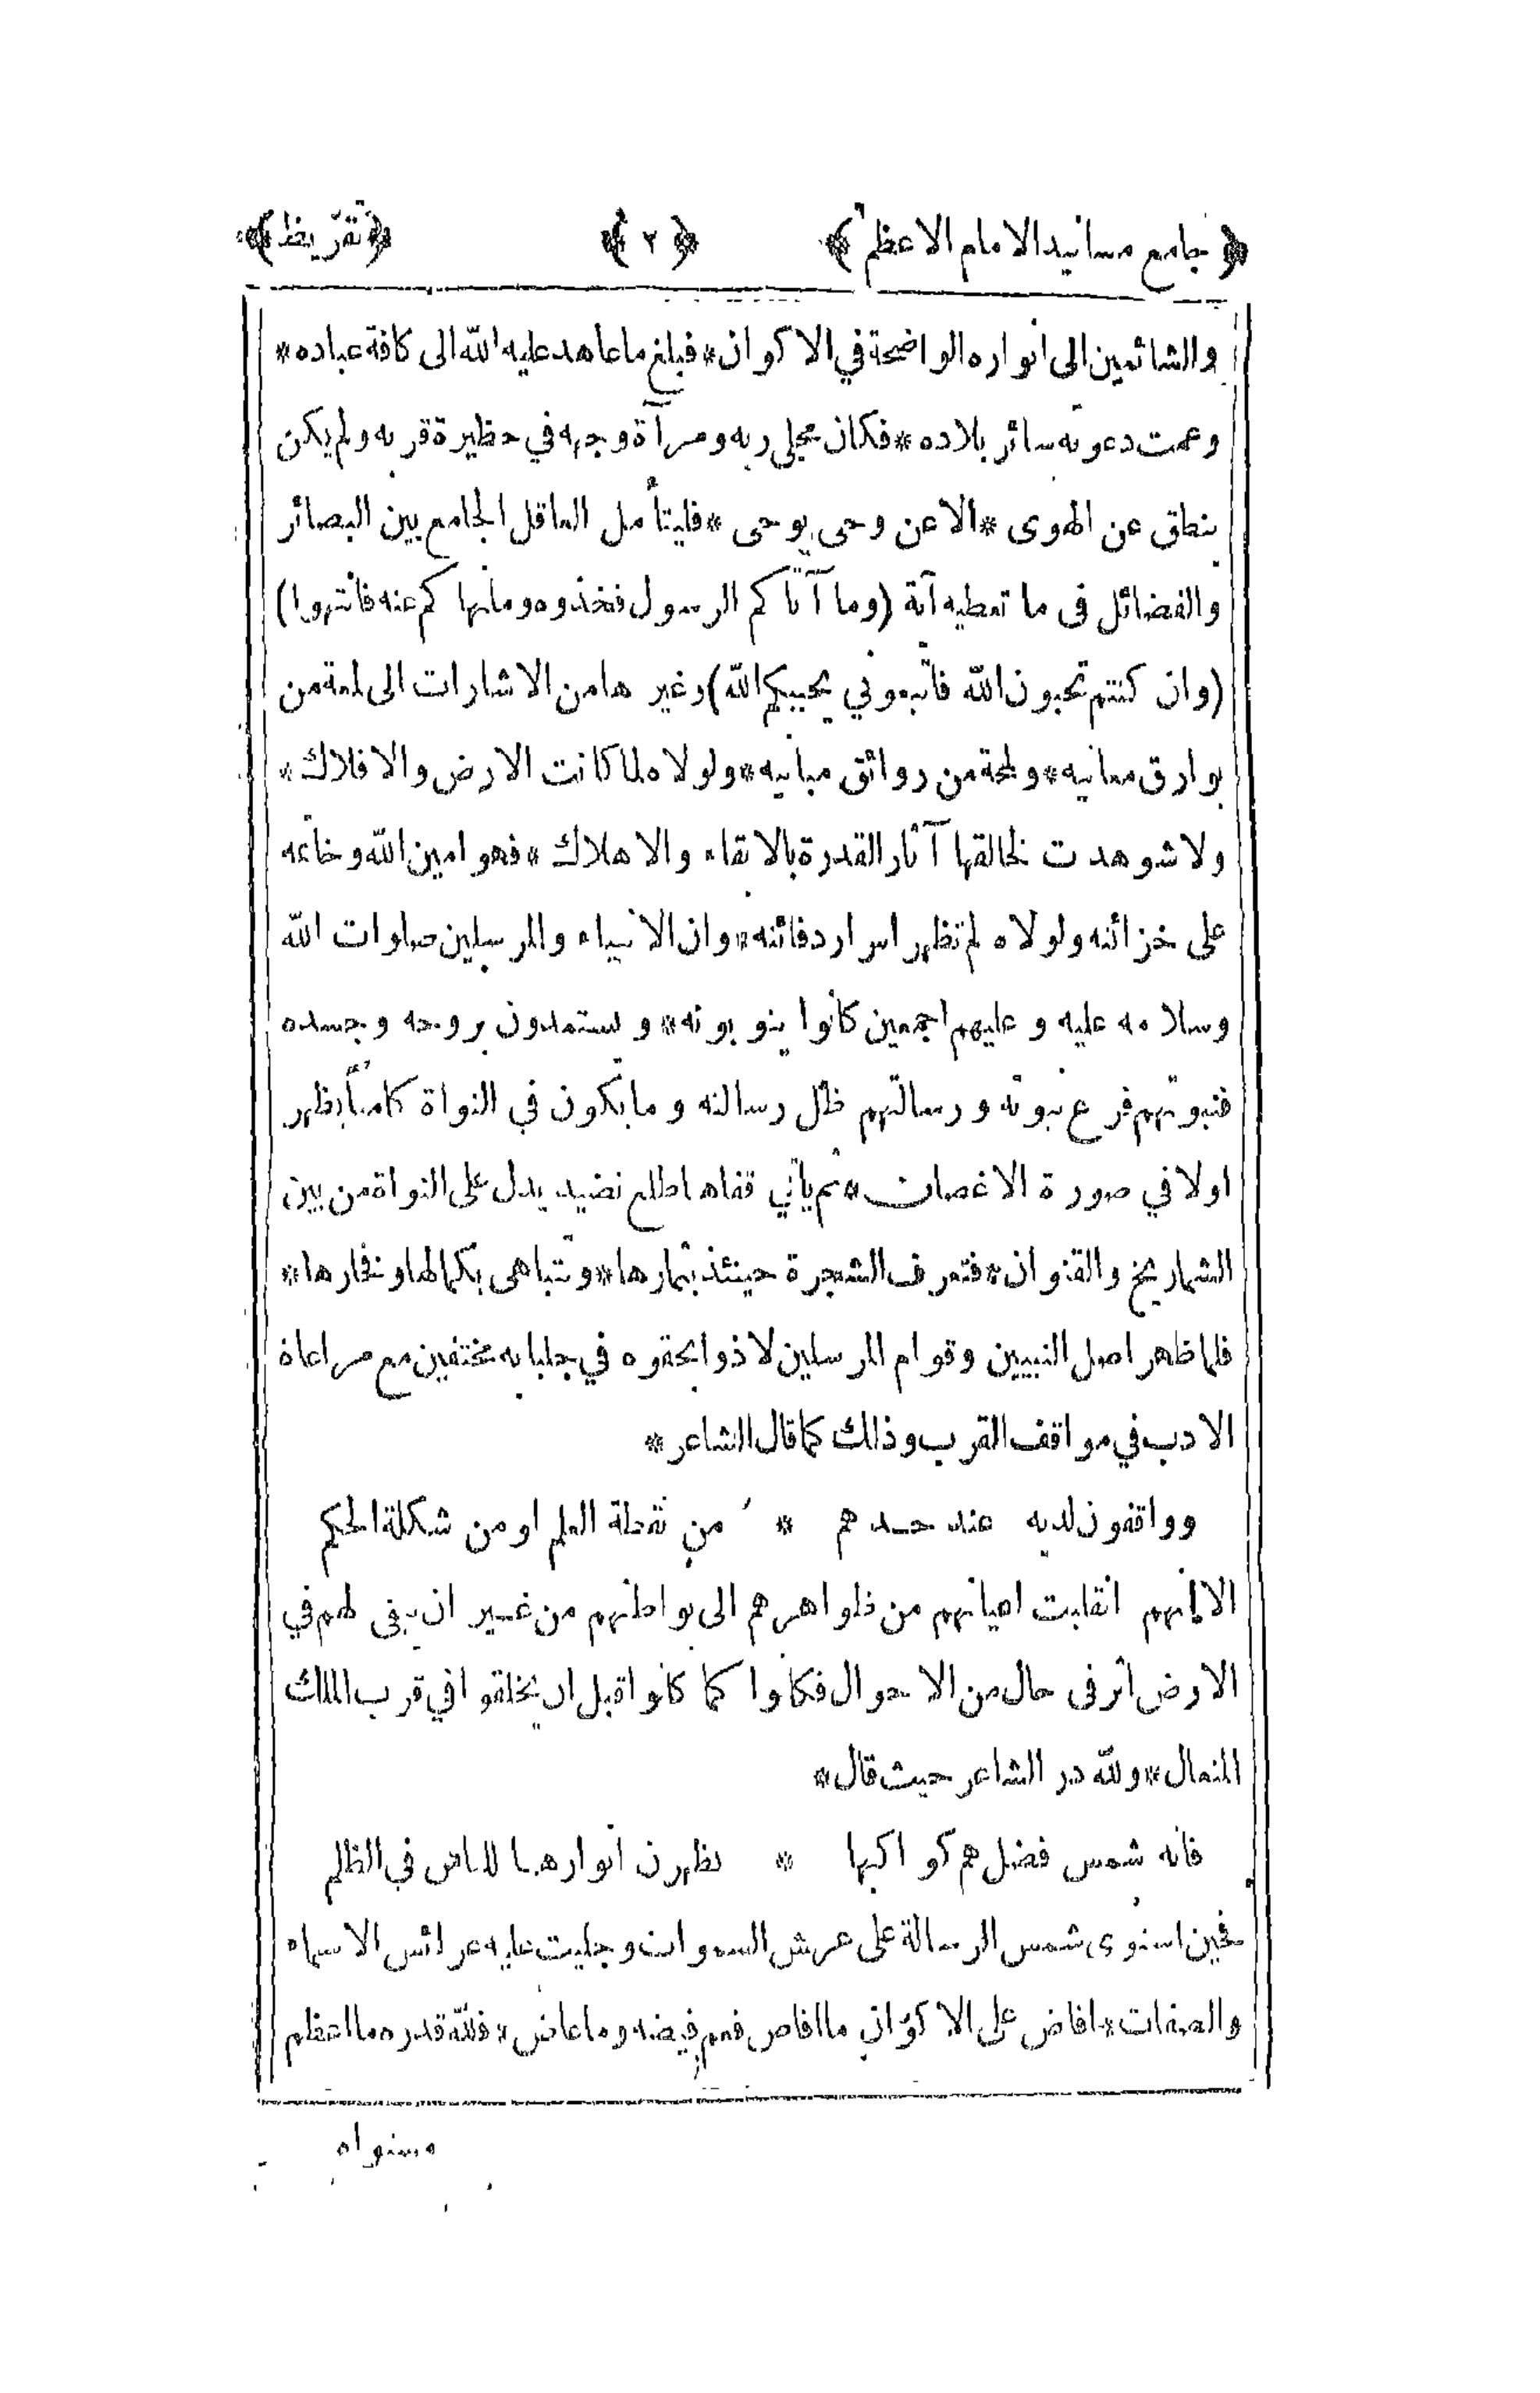 ﴿ جامع مسانيد الامام الاعظم ﴾ ﴿ ٢ ﴾ ﴿ تقريظ ﴾
والشائمين الى انواره الواضحة في الاكوان * فبلغ ما عاهد عليه الله الى كافة عباده *
وعمت دعوته سائر بلاده * فكان مجلى ربه ومرآة وجهه في حظيرة قربه ولم يكن
ينطق عن الهوى * الا عن وحى يوحى * فليتأمل العاقل الجامع بين البصائر
والفضائل فى ما تعطيه آية (وما آتاكم الرسول فخذوه وما نهاكم عنه فانتهوا)
(وان كنتم تحبون الله فاتبعونى يحببكم الله) وغيرها من الاشارات الى لمعة من
بوارق معانيه * ولمحة من روائق مبانيه * ولولاه لما كانت الارض والافلاك *
ولا شوهدت لخالقها آثار القدرة بالابقاء والاهلاك * فهو امين الله وخاتمه
على خزائنه ولولاه لم تظهر اسرار دفائنه * وان الانبياء والمرسلين صلوات الله
وسلامه عليه وعليهم اجمعين كانوا ينوبونه * ويستمدون بروحه وجسده
فنبوتهم فرع نبوته ورسالتهم ظل رسالته وما يكون في النواة كامناً يظهر
اولا في صورة الاغصان * ثم يأتي قفاها طلع نضيد يدل على النواة من بين
الشماريخ والقنوان * فتعرف الشجرة حينئذ بثمارها * وتتباهى بكمالها وفخارها *
فلما ظهر اصل النبيين وقوام المرسلين لاذوا بحقوه في جلبابه مختفين مع مراعاة
الادب في مواقف القرب وذلك كما قال الشاعر *
وواقفون لديه عند حدهم * من نقطة العلم او من شكلة الحكم
الا انهم انقلبت اعيانهم من ظواهرهم الى بواطنهم من غير ان يبقى لهم في
الارض أثر فى حال من الاحوال فكانوا كما كانوا قبل ان يخلقوا في قرب الملك
المتعال * ولله در الشاعر حيث قال *
فانه شمس فضل هم كواكبها * يظهرن انوارها للناس في الظلم
فحين استوى شمس الرسالة على عرش السموات وجليت عليه عرائس الاسماء
والصفات * افاض على الاكوان ما افاض فعم فيضه وما غاض * فلله قدره ما اعظم